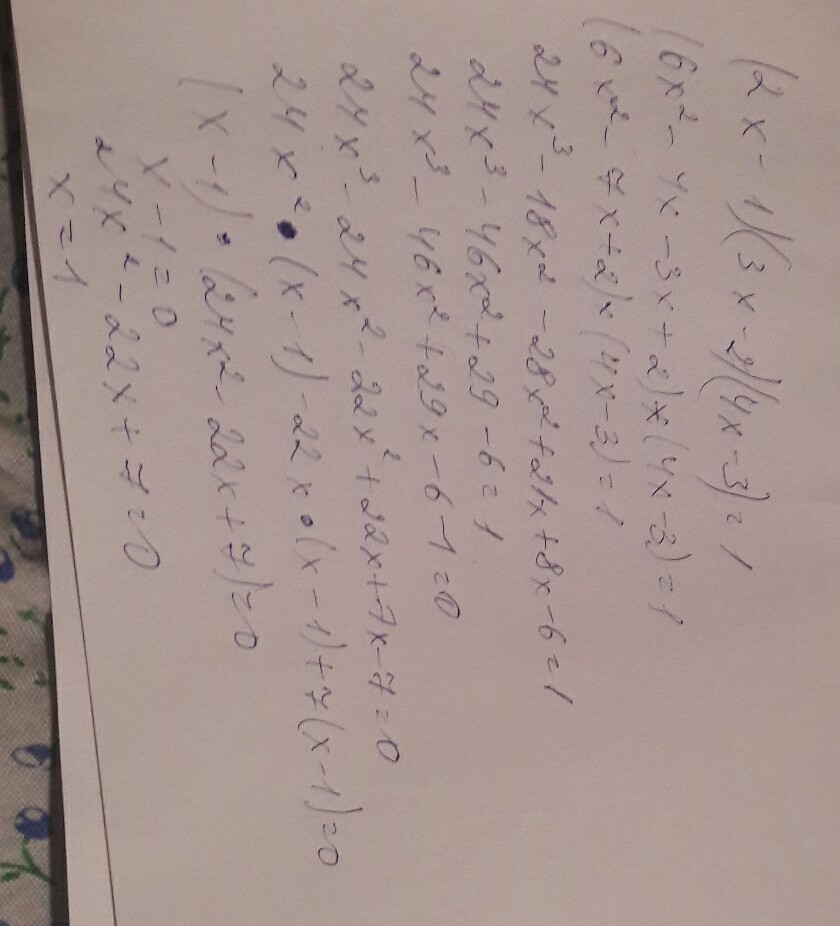 (2x-1)(3x-2)(4x-3)=1
(6x²-4x-3x+2)x(4x-3)=1
(6x²-7x+2)x(4x-3)=1
24x³-18x²-28x²+21x+8x-6=1
24x³-46x²+29-6=1
24x³-46x²+29x-6-1=0
24x³-24x²-22x²+22x+7x-7=0
24x²•(x-1)-22x•(x-1)+7(x-1)=0
(x-1)•(24x²-22x+7)=0
x-1=0
24x²-22x+7=0
x=1